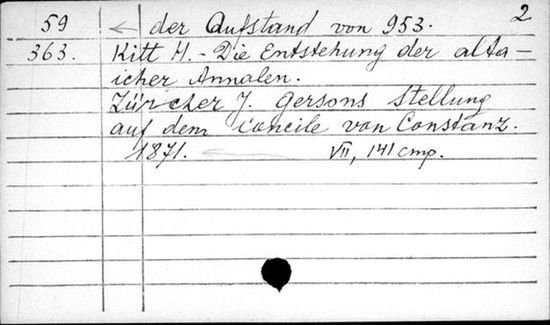 2
59 ← der Aufstand von 953.
363. Kitt H. - Die Entstehung der alta-
icher Annalen.
Zürcher J. Gersons Stellung
auf dem Concile von Constanz.
1871. VII, 141 cmp.